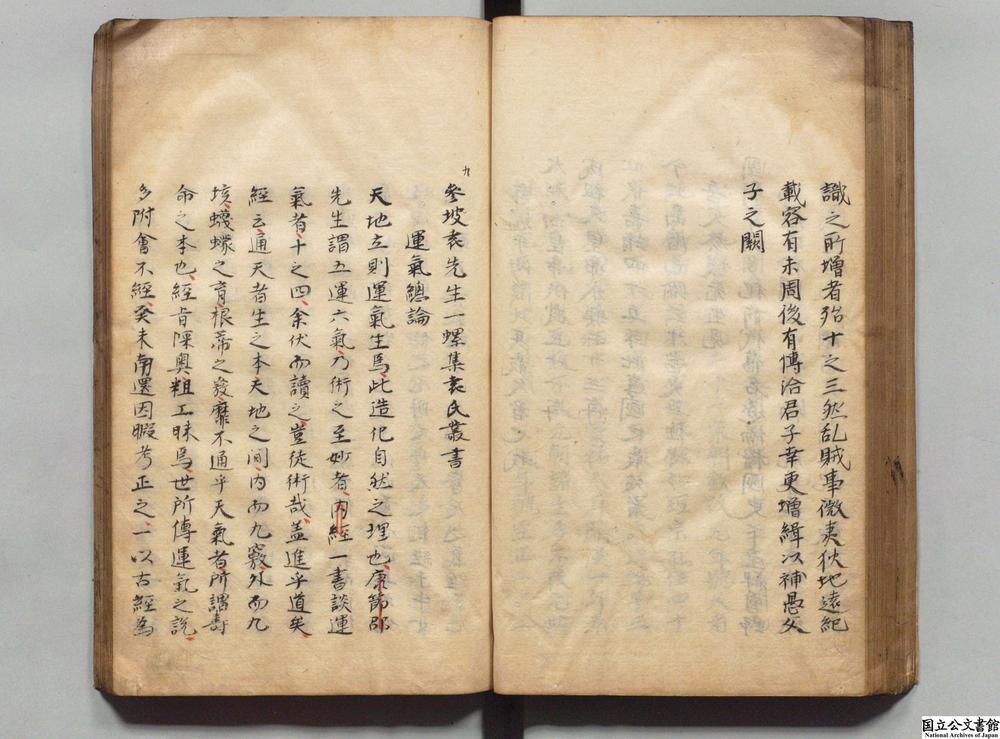 識之所増者殆十之三然乱賊事微夷狄地遠紀
載容有未周後有博洽君子幸更增緝以補愚父
子之闕
九
參坡袁先生一螺集袁氏叢書
運氣總論
天地立則運氣生焉此造化自然之理也康節邵
先生謂五運六氣乃術之至妙者内經一書談運
氣者十之四余伏而讀之豈徒術哉蓋進乎道矣
經云通天者生之本天地之間内而九竅外而九
垓蠛蠓之育根荄之發靡不通乎天氣者所謂壽
命之本也經旨深奥粗工昧焉世所傳運氣之説
多附會不經癸未南還因暇考正之一以古經為
国立公文書館
National Archives of Japan